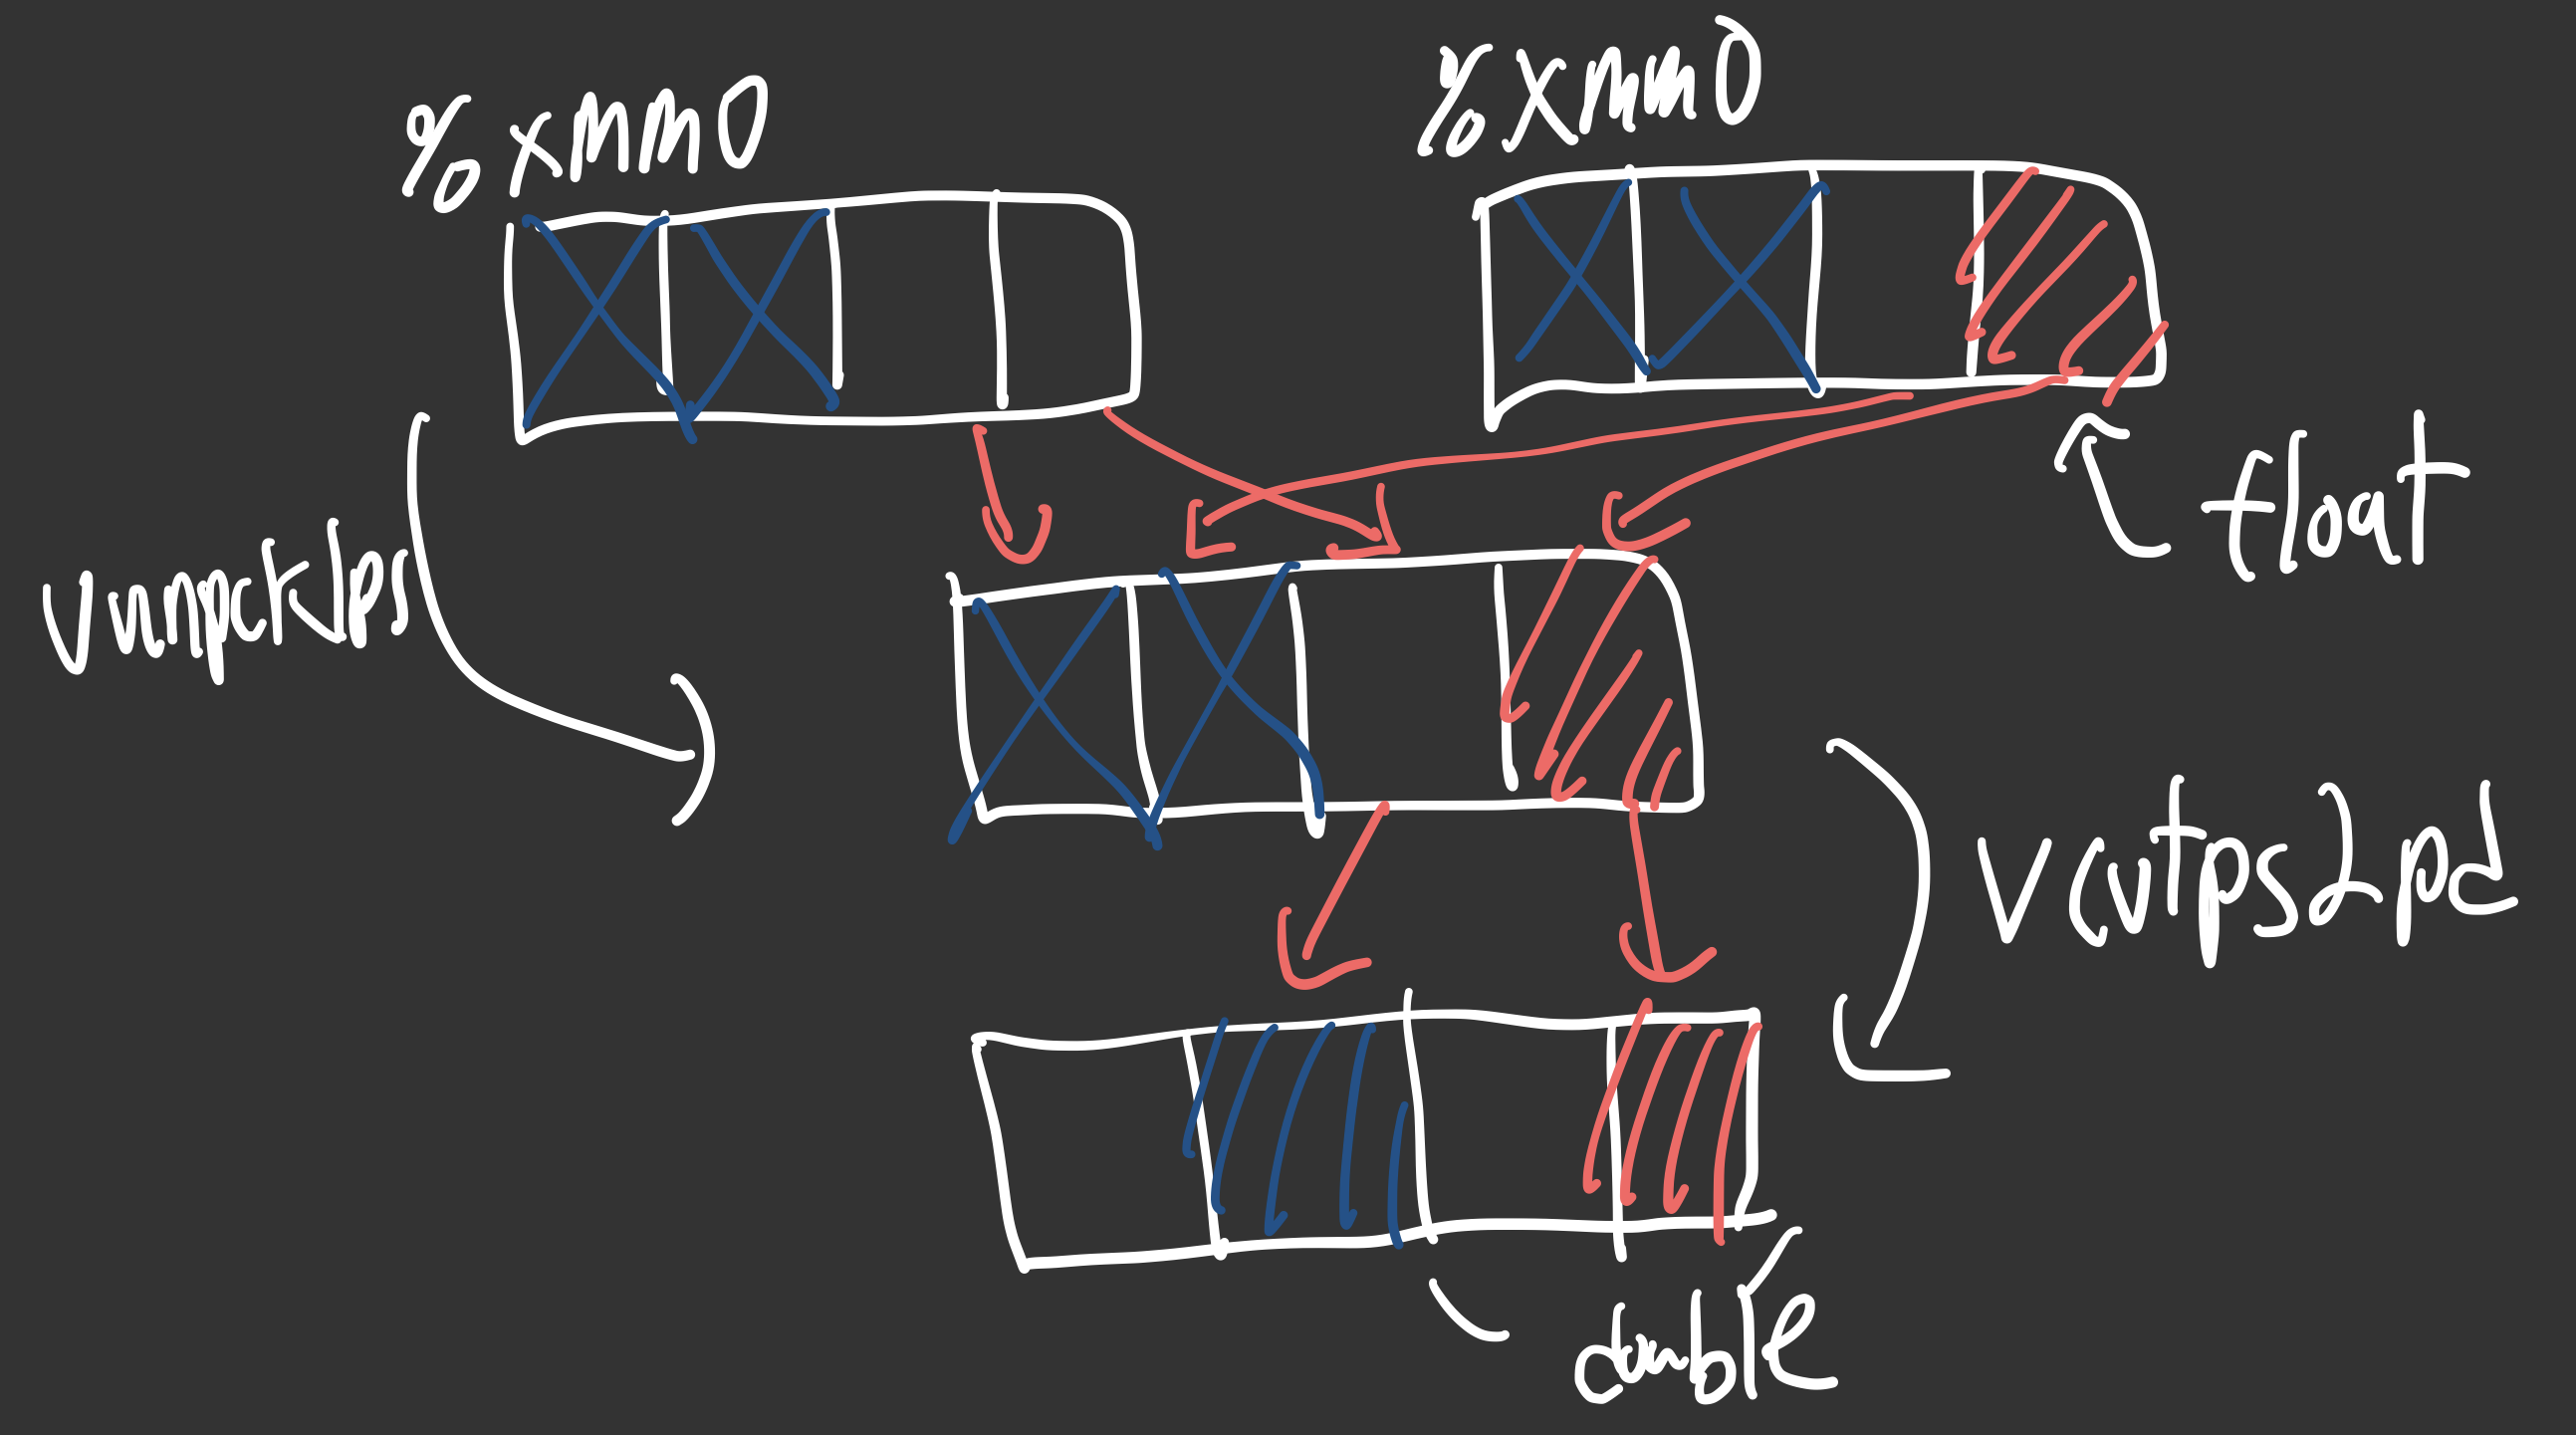 %xmm0
%xmm0
float
vunpcklps
vcvtps2pd
double